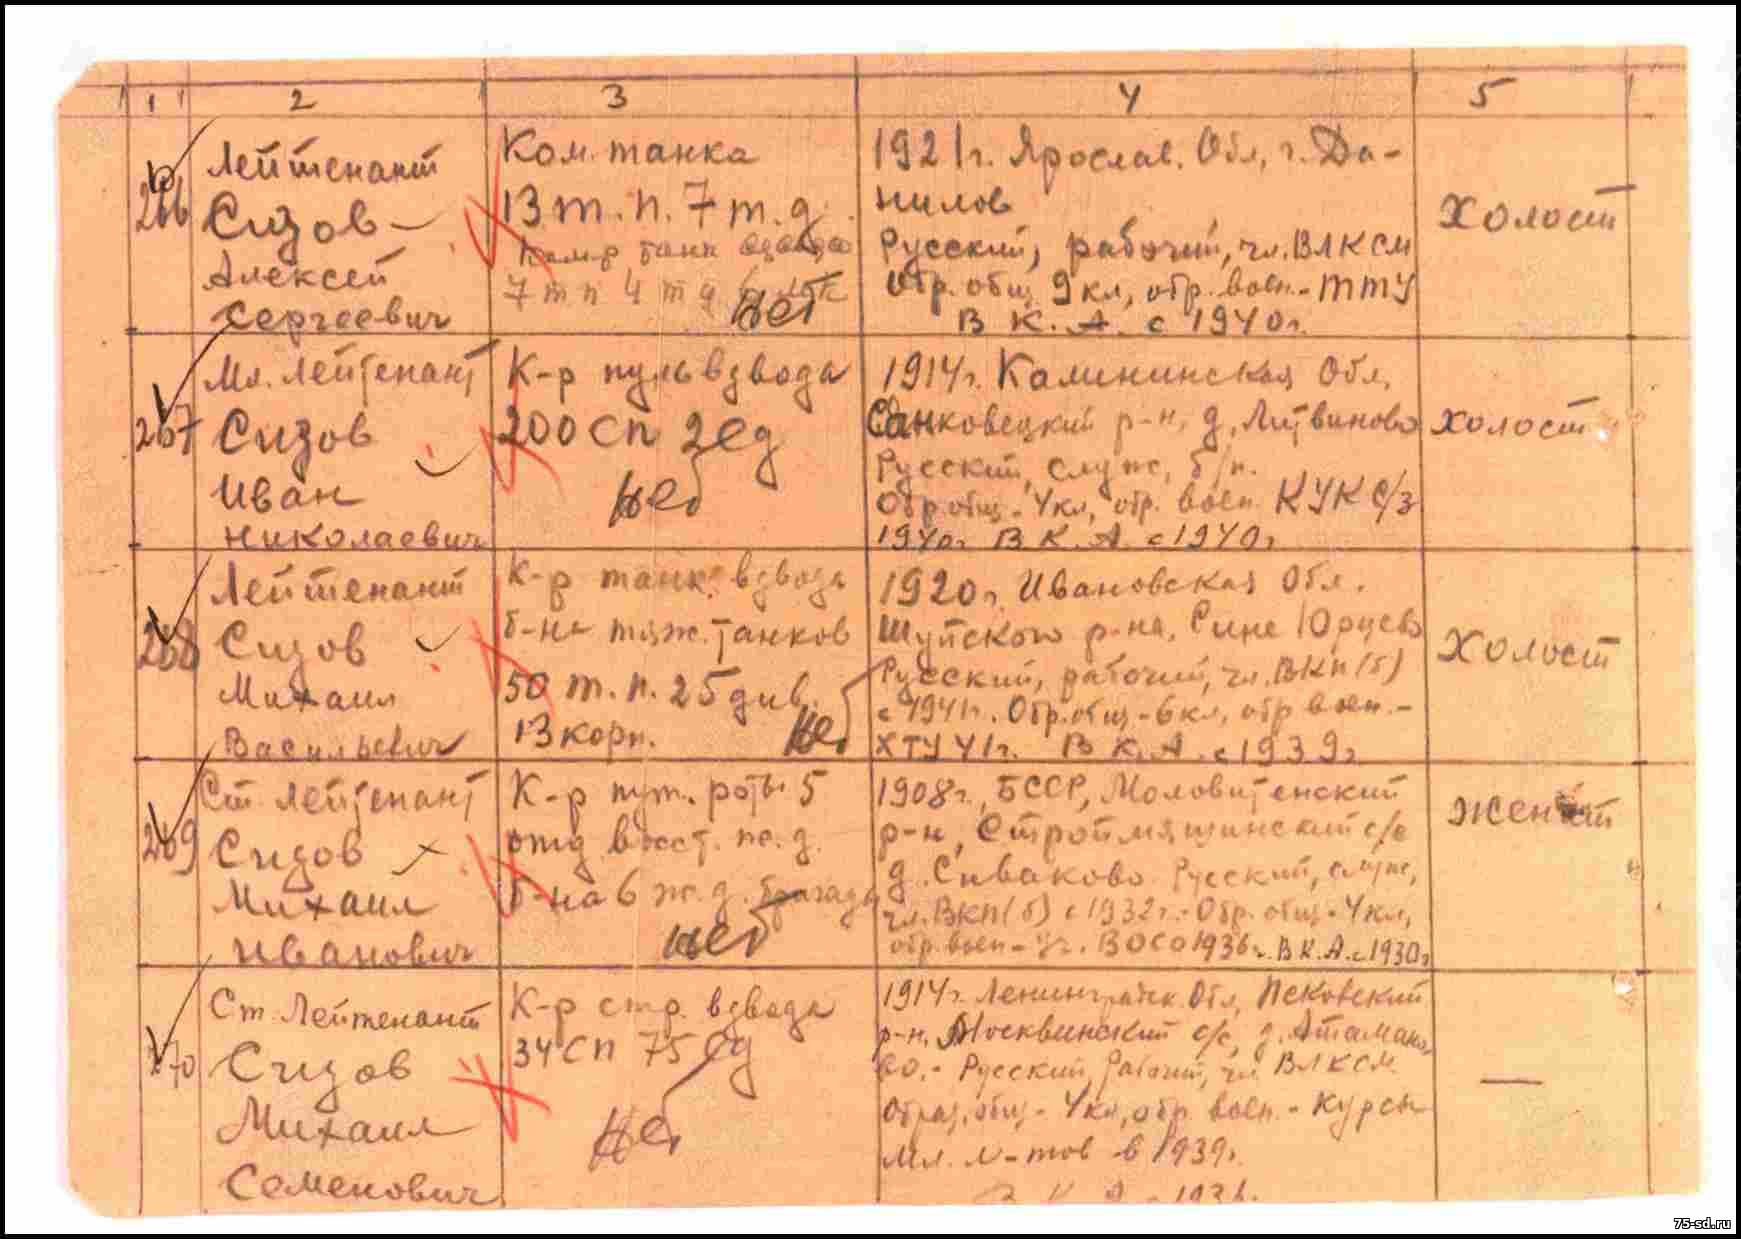 1 2 3 4 5
266
Лейтенант
Сизов
Алексей
Сергеевич
Ком. танка
13 т. п. 7 т. д.
Ком-р танк взвода
7 т п 4 т д
нет
1921 г. Ярослав. Обл, г. Да-
нилов
Русский, рабочий, чл. ВЛКСМ
Обр. общ 9 кл, обр. воен. - ТТУ
В К. А. с 1940 г.
Холост
267
Мл. лейтенант
Сизов
Иван
Николаевич
К-р пульвзвода
200 сп 2 сд
нет
1914 г. Калининская Обл,
Санковецкий р-н, д. Литвиново
Русский, служ, б/п.
Обр. общ - 4 кл, обр. воен. КУКС/з
1940 г. В К. А. с 1940 г.
Холост
268
Лейтенант
Сизов
Михаил
Васильевич
К-р танк. взвода
б-на тяж. танков
50 т. п. 25 див.
13 корп.
нет
1920 г. Ивановская Обл.
Шуйского р-на,
Русский, рабочий, чл. ВКП(б)
с 1941 г. Обр. общ - 6 кл, обр воен. -
ХТУ 41 г. В К. А. с 1939 г
Холост
269
Ст. лейтенант
Сизов
Михаил
Иванович
К-р пут. роты 5
отд восст. ж. д.
б-на 6 ж. д. бригада
нет
1908 г., БССР,
р-н, с/с
д. Сиваково. Русский, служ,
чл. ВКП(б) с 1932 г. - Обр. общ - 4 кл,
обр. воен - ВОСО 1936 г. В К. А. с 1930 г
Женат
270
Ст. Лейтенант
Сизов
Михаил
Семенович
К-р стр. взвода
34 СП 75 СД
нет
1914 г. Ленинградск. Обл, Псковский
р-н, Москвинский с/с, д. Атамано-
во. - Русский, рабочий, чл ВЛКСМ
Образ. общ - 4 кл, обр. воен. - курсы
Мл. л-тов в 1939 г.
—
75-sd.ru